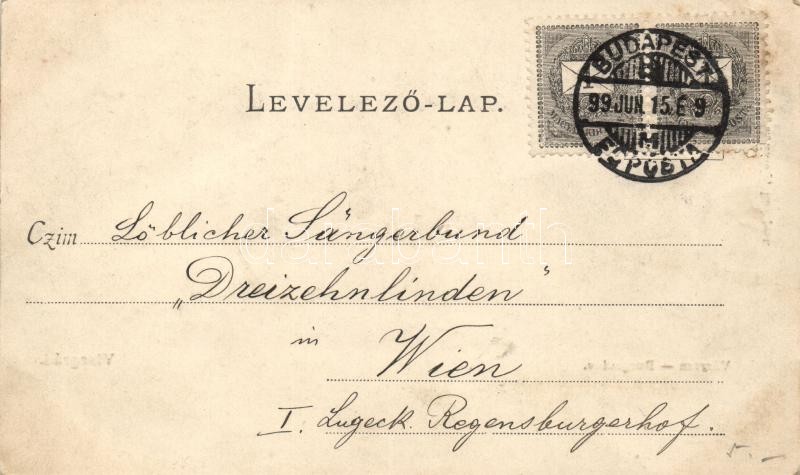 BUDAPEST
99. JUN 15. E 9
FŐPOSTA
LEVELEZŐ-LAP.
Czim Löblicher Sängerbund
„Dreizehnlinden"
in
Wien
I. Lugeck. Regensburgerhof.
5.–